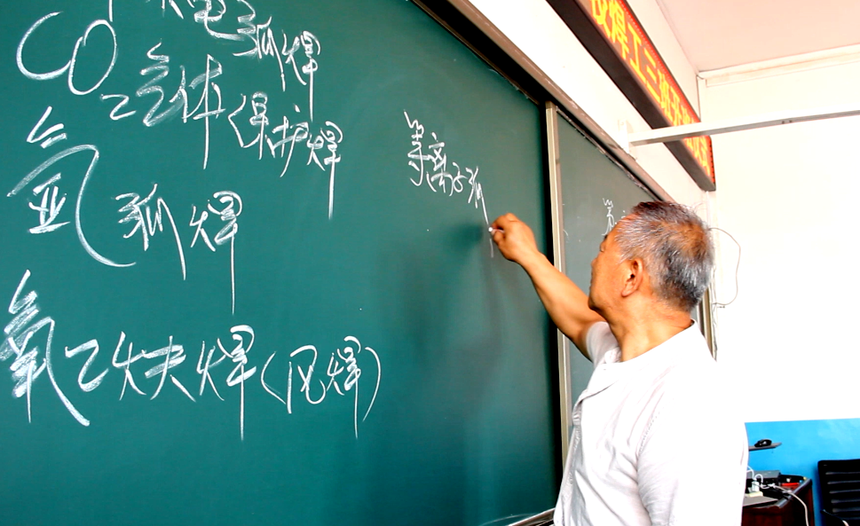 电弧焊
CO₂气体保护焊
氩弧焊
氧乙炔焊(风焊)
等离子弧
焊工三班